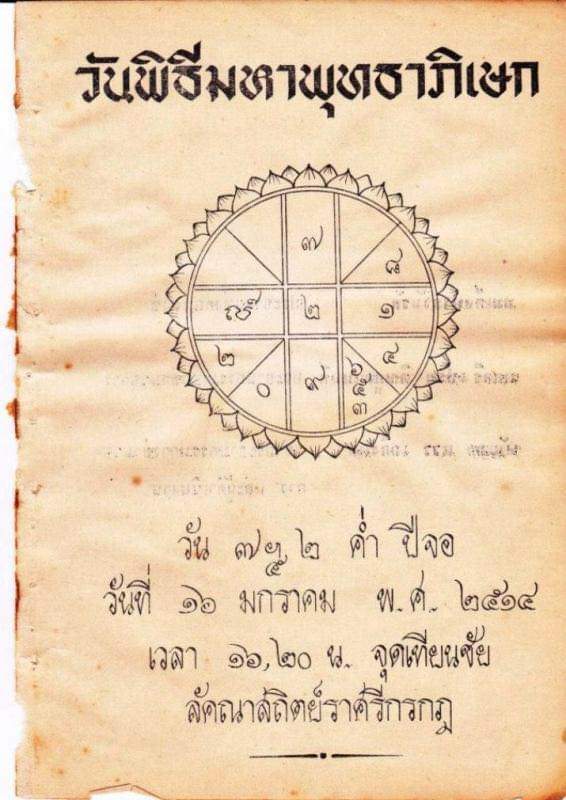 วันพิธีมหาพุทธาภิเษก
๗
๘
๒
๑
๒
๔
๐
๙
๖
๕
๓
วัน ๗ ฯ ๒ ค่ำ ปีจอ
๕
วันที่ ๑๖ มกราคม พ.ศ. ๒๕๑๔
เวลา ๑๖,๒๐ น. จุดเทียนชัย
ลัคณาสถิตย์ราศรีกรกฎ